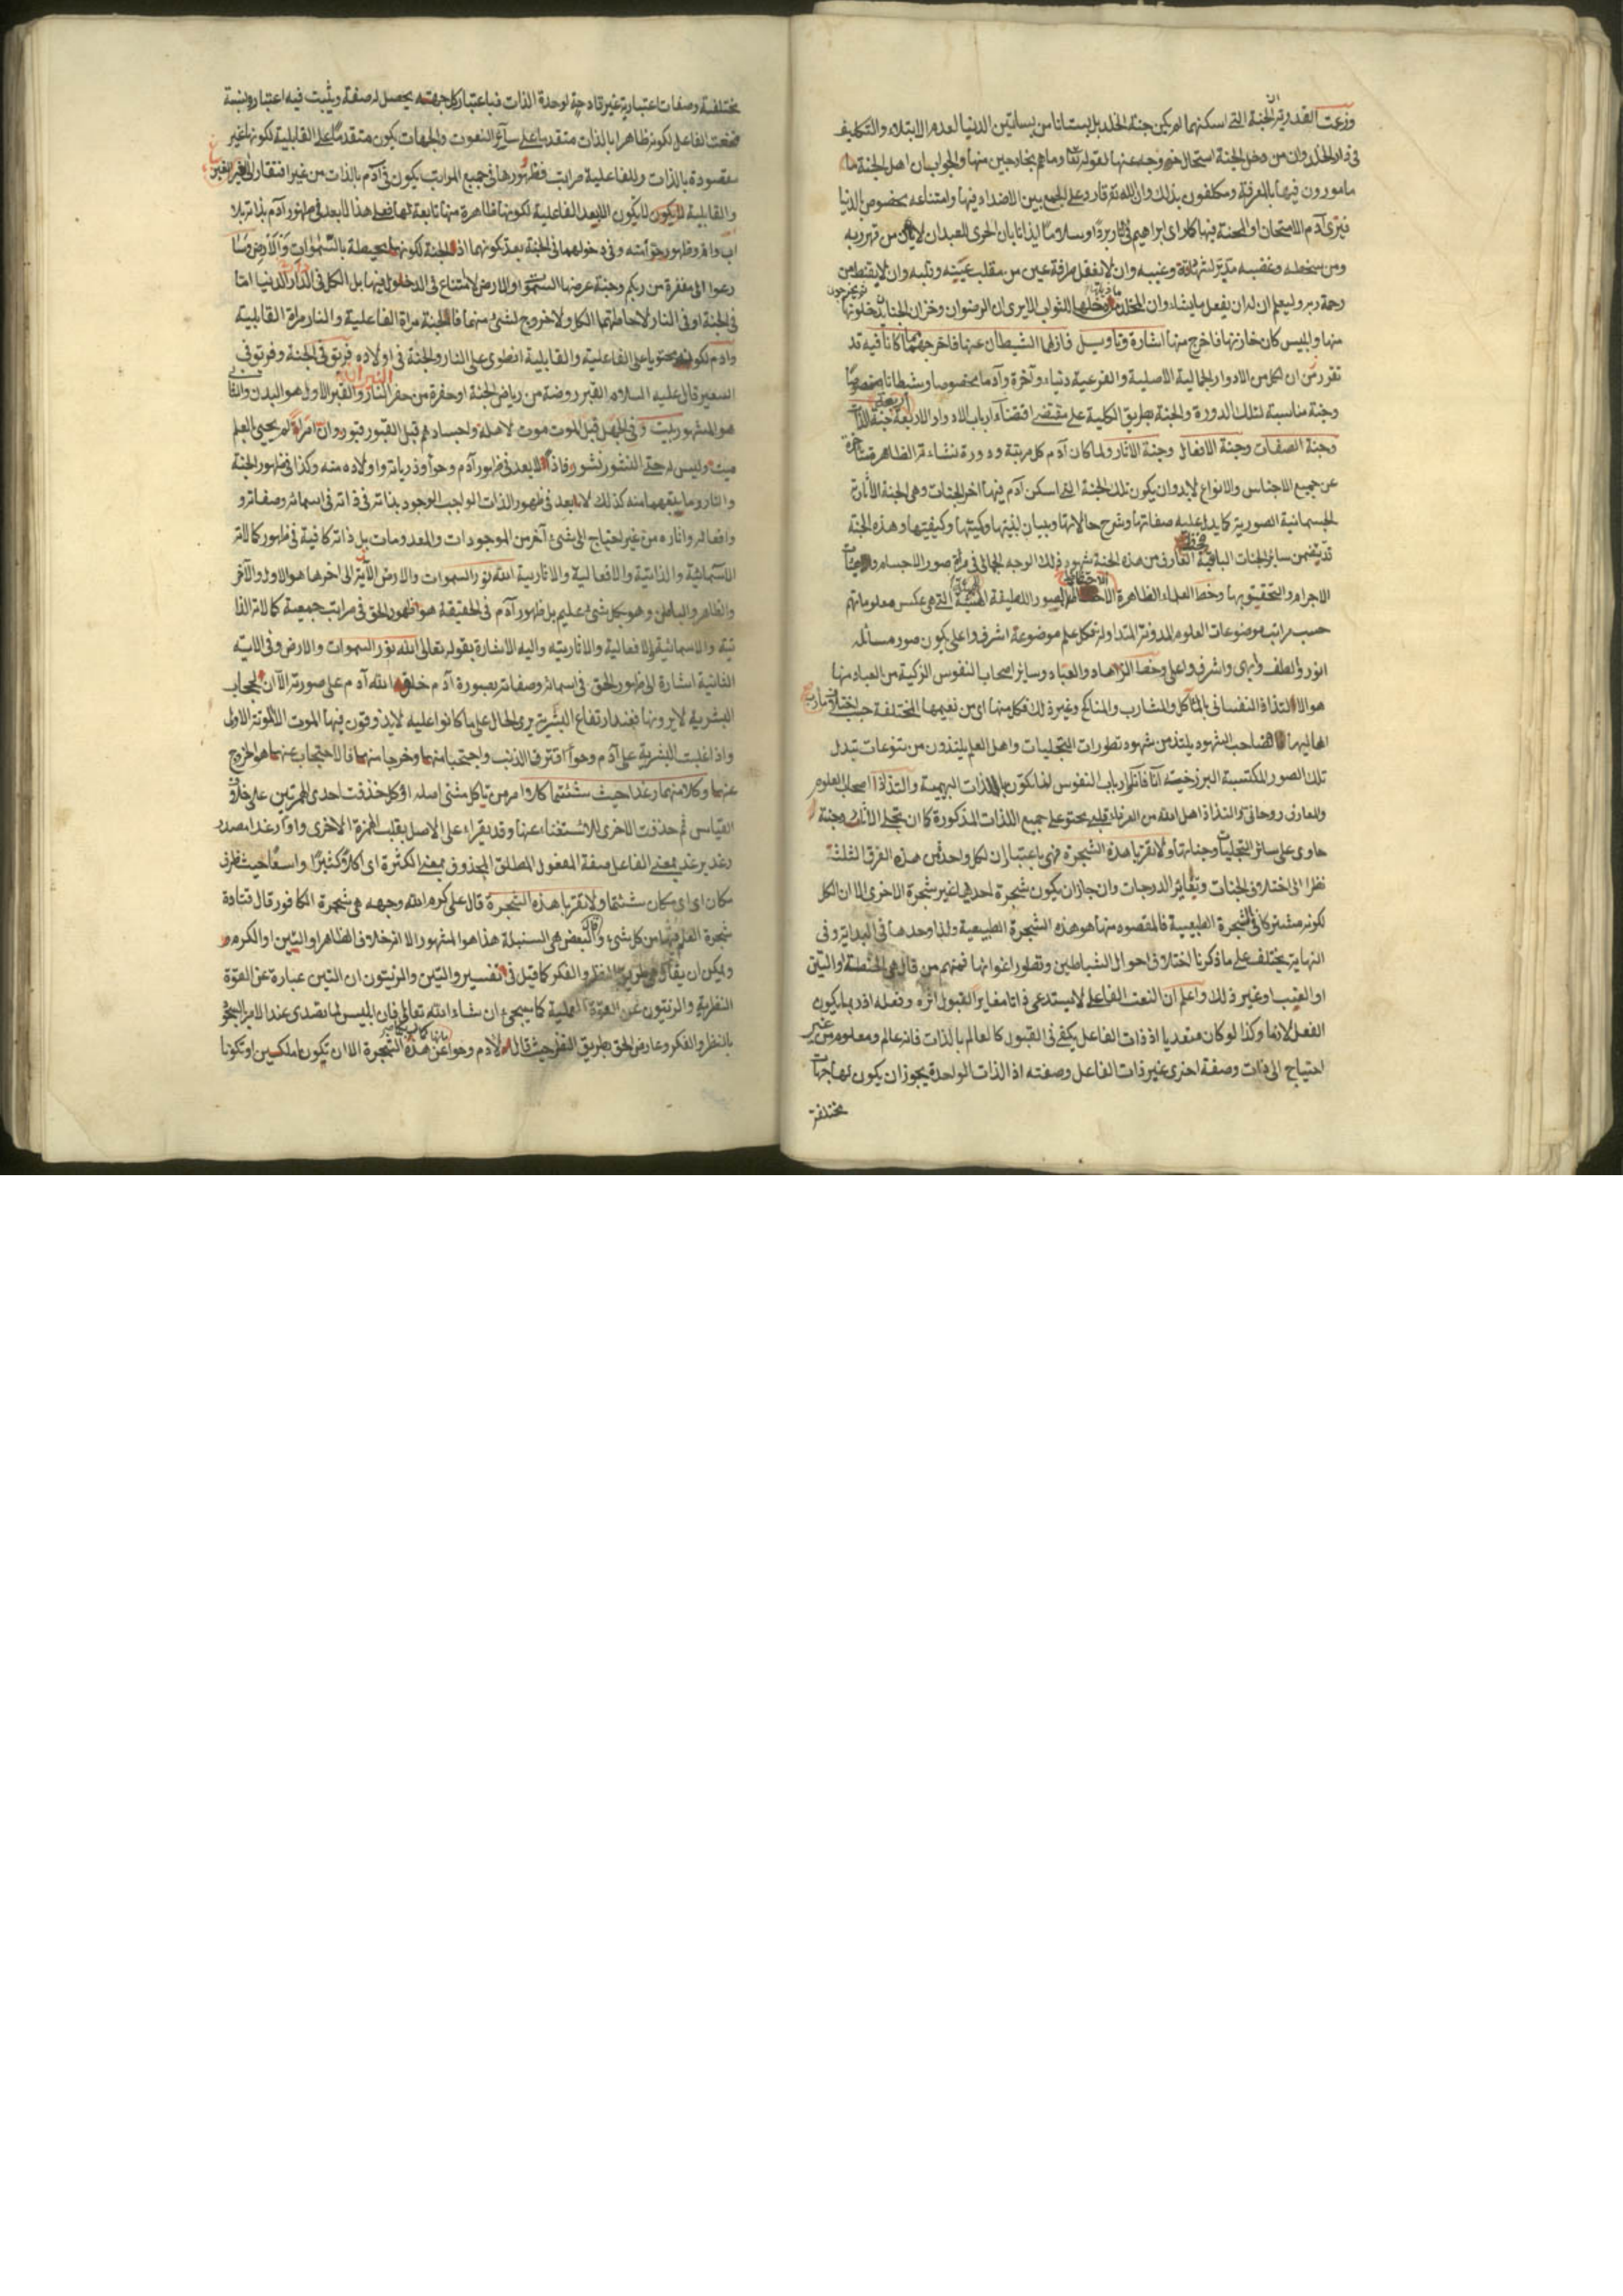 وزعمت القدرية ان الجنة التى اسكنهما لم يكن جنة الخلد بل بستانا من بساتين الدنيا لعدم الابتلاء والتكليف
فى دار الخلد وان من دخل الجنة استحال خروجه عنها لقوله تعا وما هم بخارجين منها والجواب ان اهل الجنة
مامورون فيها بالمعرفة ومكلفون بذلك وان الله تع قادر على الجمع بين الاضداد فيها وامتناعه بخصوص الدنيا
فيرى آدم الامتحان والمحنة فيها كما رأى ابراهيم فى ناره بردا وسلاما ايذانا بان الحرى للعبد ان لا يأمن من قهر ربه
ومن سخطه وغضبه وغيبه وان لا يغفل طرفة عين من مقلب وقلبه وان لا يقنط من
رحمة ربه وليعلم ان له ان يفعل ما يشاء وان يدخلونها
منها وابليس كان خازنها فاخرج منها اشارة وتأويل فازلهما الشيطان عنها فاخرجهما مما كانا فيه قد
تقرر من ان لكل من الادوار الجمالية الاصلية والفرعية دنيا وآخرة وآدما مخصوصا وشيطانا مخصوصا
وجنة مناسبة لتلك الدورة والجنة بطريق الكلية على مقتضى اقتضاء ارباب الادوار الاربعة اربعة جنة الذات
وجنة الصفات وجنة الافعال وجنة الاثار ولما كان آدم كل مرتبة ودورة نشاءته الظاهرة متأخرة
عن جميع الاجناس والانواع لا بد وان يكون تلك الجنة التى اسكن آدم فيها اخر الجنات وهى الجنة الاثارية
الجسمانية الصورية كما يدل عليه صفاتها وشرح حالاتها وبيان لبنيتها وكميتها وكيفيتها وهذه الجنة
قد يتضمن سائر الجنات الباقية فحظ العارف من هذه الجنة شهود ذلك الوجه الجمالى فى مرائى صور الاجسام
الاجرام والتحقيق بها وحظ العلماء الظاهرة الصور اللطيفة التى هى عكس معلوماتهم
حسب مراتب موضوعات العلوم المدونة المتداولة فكل علم موضوعه اشرف واعلى يكون صور مسائله
انور والطف وابهى واشرف واعلى وحظ الزهاد والعباد وسائر اصحاب النفوس الزكية من العباد منها
هو الالتذاذ النفسانى بالمآكل والمشارب والمناكح وغير ذلك فكل منها اى من نعيمها المختلفة حسب اختلاف
اهاليها فصاحب الشهود يلتذ من شهود تطورات التجليات واهل العلم يلتذون من تنوعات تبدل
تلك الصور المكتسبة البرزخية آنا فآنا وارباب النفوس لما تكون باللذات البهيمية والتذاذ اصحاب العلوم
والمعارف روحانى والتذاذ اهل الله من العرفاء قلبى يحتوى على جميع اللذات المذكورة كما ان تجلى الاثار وجنة
حاوى على سائر التجليات وجناتها ولا تقربا هذه الشجرة فهى باعتبار ان لكل واحد من هذه الفرق الثلثة
نظرا الى اختلاف الجنات وتغاير الدرجات وان جاز ان يكون شجرة احديها غير شجرة الاخرى الا ان الكل
لكونه مشتركا فى الشجرة الطبيعية فالمقصود منها هو هذه الشجرة الطبيعية ولذا وحدها فى البداية وفى
النهاية يختلف على ما ذكرنا اختلاف احوال الشياطين وتطور اغوائها فمنهم من قال هى الحنطة او التين
او العنب او غير ذلك واعلم ان النعت الفاعلى لا يستدعى ذاتا مغايرا لقبول اثره وفعله اذ ربما يكون
الفعل لازما وكذا لو كان متعديا اذ ذات الفاعل يكفى فى القبول كالعالم بالذات فانه عالم ومعلوم من غير
احتياج الى ذات وصفة اخرى غير ذات الفاعل وصفته اذ الذات الواحدة يجوز ان يكون لها جهات
مختلفة
مختلفة وصفات اعتبارية غير قادحة لوحدة الذات فباعتبار كل جهة يحصل له صفة ويثبت فيه اعتبار ونسبة
فنعت الفاعل لكونه ظاهرا بالذات متقدما على سائر النعوت والجهات يكون متقدما على القابلية لكونها غير
مقصودة بالذات وللفاعلية مراتب فظهورها فى جميع المراتب يكون فى آدم بالذات من غير افتقار الى
والقابلية لا يكون الا بعد الفاعلية لكونها ظاهرة منها تابعة لها فعلى هذا لا بعد فى ظهور آدم بذاته بلا
اب وام وظهور حواء منه وفى دخولهما فى الجنة بعد كونهما اذ الجنة لكونها محيطة بالسموات والارض وسا
رعوا الى مغفرة من ربكم وجنة عرضها السموات والارض لامتناع فى الدخول فيها بل الكل فى الدار الدنيا اما
فى الجنة او فى النار لاحاطتهما الكل ولا خروج لشئ منهما فالجنة مرآة الفاعلية والنار مرآة القابلية
وآدم لكونه محتويا على الفاعلية والقابلية انطوى على النار والجنة فى اولاده فريق فى الجنة وفريق فى
السعير قال عليه السلام القبر روضة من رياض الجنة او حفرة من حفر النار والقبر الاول هو البدن والثا
هو المشهور بيت وفى الجهل قبل الموت موت لاهله واجسادهم قبل القبور قبور وان امرأ لم يحيى بالعلم
ميت وليس له حتى النشور نشور فاذا لا بعد فى ظهور آدم وحواء وذرياته واولاده منه وكذا فى ظهور الجنة
والنار وما يتبعهما منه كذلك لا بعد فى ظهور الذات الواجب الوجود بذاته فى ذاته فى اسمائه وصفاته و
وافعاله واثاره من غير احتياج الى شئ آخر من الموجودات والمعدومات بل ذاته كافية فى ظهور كمالاته
الاسمائية والذاتية والافعالية والاثارية الله نور السموات والارض الآية الى اخرها هو الاول والآخر
والظاهر والباطن وهو بكل شئ عليم بل ظهور آدم فى الحقيقة هو ظهور الحق فى مراتب جمعية كمالاته الذا
تية والاسمائية والافعالية والاثارية واليه الاشارة بقوله تعالى الله نور السموات والارض وفى الآية
الثانية اشارة الى ظهور الحق فى اسمائه وصفاته بصورة آدم خلق الله آدم على صورته الا ان الحجاب
البشرية لا يرونها فعند ارتفاع البشرية يرى الحال على ما كانوا عليه لا يذوقون فيها الموت الا الموتة الاولى
واذا غلبت البشرية على آدم وحواء اقترفا الذنب واحتجبا منهما وخرجا منهما فالاحتجاب عنهما هو الخروج
عنهما وكلا منهما رغدا حيث شئتما كلا امر من تاكل شئ اصله اؤكل حذفت احدى الهمزتين على خلاف
القياس ثم حذفت الاخرى للاستغناء عنها وقد يقراء على الاصل بقلب الهمزة الاخرى واوا رغدا مصدر
رغد يرغد بمعنى الفاعل صفة المفعول المطلق المحذوف بمعنى الكثرة اى اكلا كثيرا واسعا حيث ظرف
مكان اى اى مكان شئتما ولا تقربا هذه الشجرة قال على كرم الله وجهه هى شجرة الكافور قال قتادة
شجرة العلم فيها من كل شئ وقال البعض هى السنبلة هذا هو المشهور الا انه خلاف الظاهر او التين او الكرم
ويمكن ان يقال هى طريق النظر والفكر كما قيل فى تفسير والتين والزيتون ان التين عبارة عن القوة
النظرية والزيتون عن القوة العملية كما سيجئ ان شاء الله تعالى فان ابليس لما تصدى عند الامر بالسجود
بالنظر والفكر وعارض الحق بطريق النظر حيث قال لآدم وحواء ما نهاكما ربكما عن هذه الشجرة الا ان تكونا ملكين او تكونا